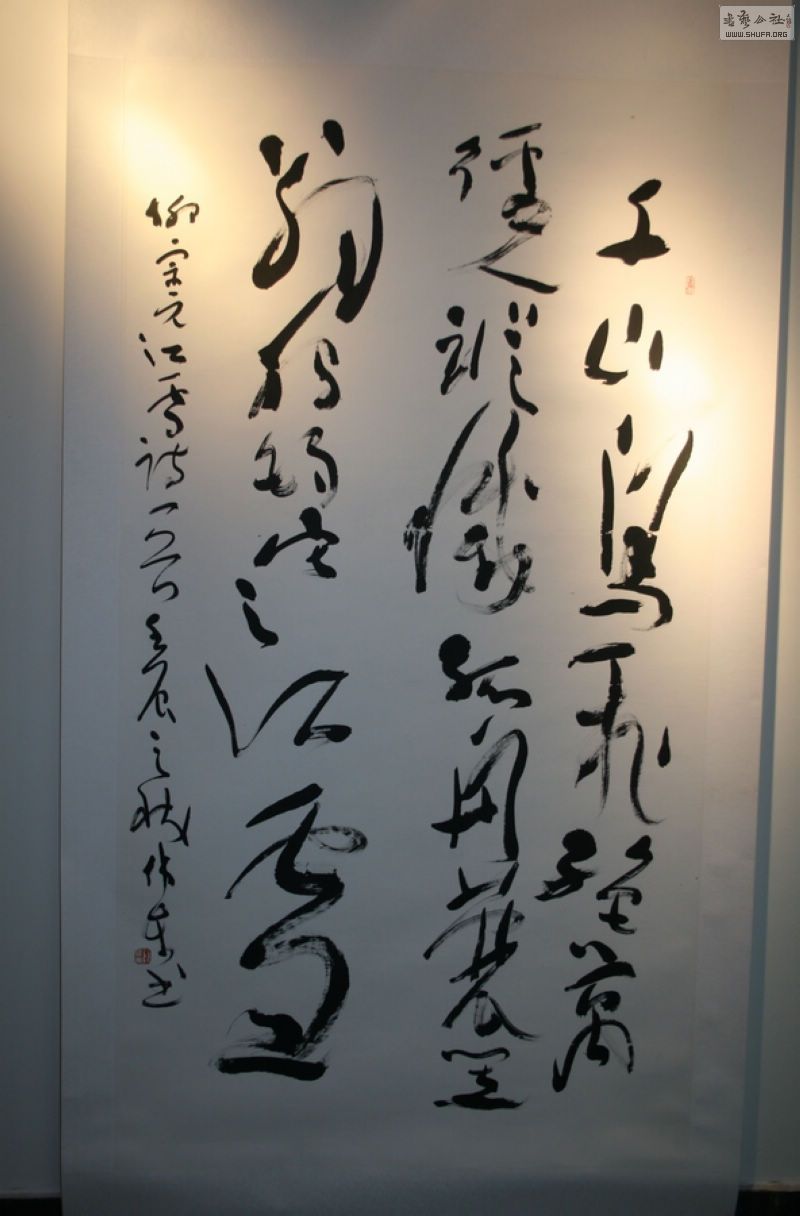 千山鳥飛絕萬
徑人蹤滅孤舟蓑笠
翁獨釣寒江雪
柳宗元江雪詩一首壬辰之秋東書
書藝公社
WWW.SHUFA.ORG